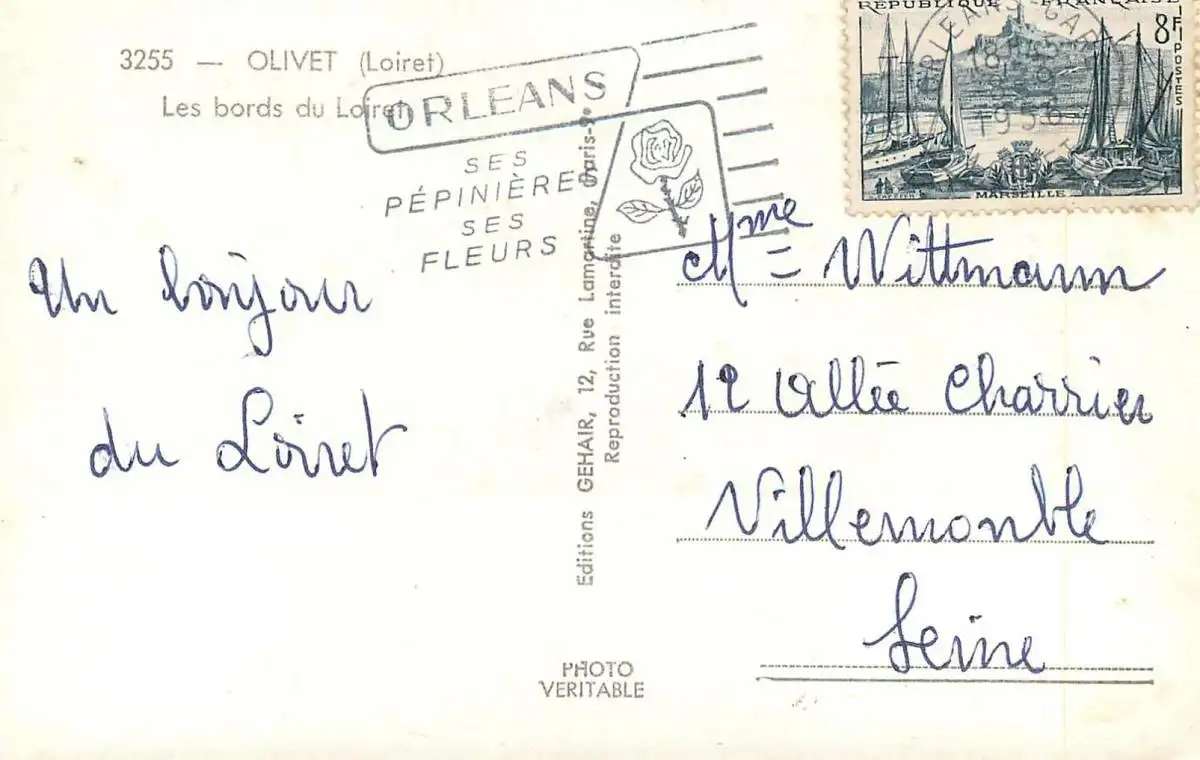 3255 — OLIVET (Loiret)
Les bords du Loiret
ORLEANS
SES
PÉPINIÈRES
SES
FLEURS
RÉPUBLIQUE FRANÇAISE
8F
POSTES
MARSEILLE
ORLEANS GARE
18H
1956
Un bonjour
du Loiret
Editions GEHAIR, 12, Rue Lamartine, Paris-9e
Reproduction interdite
PHOTO
VERITABLE
Mme = Wittmann
12 Allée Charrier
Villemonble
Seine